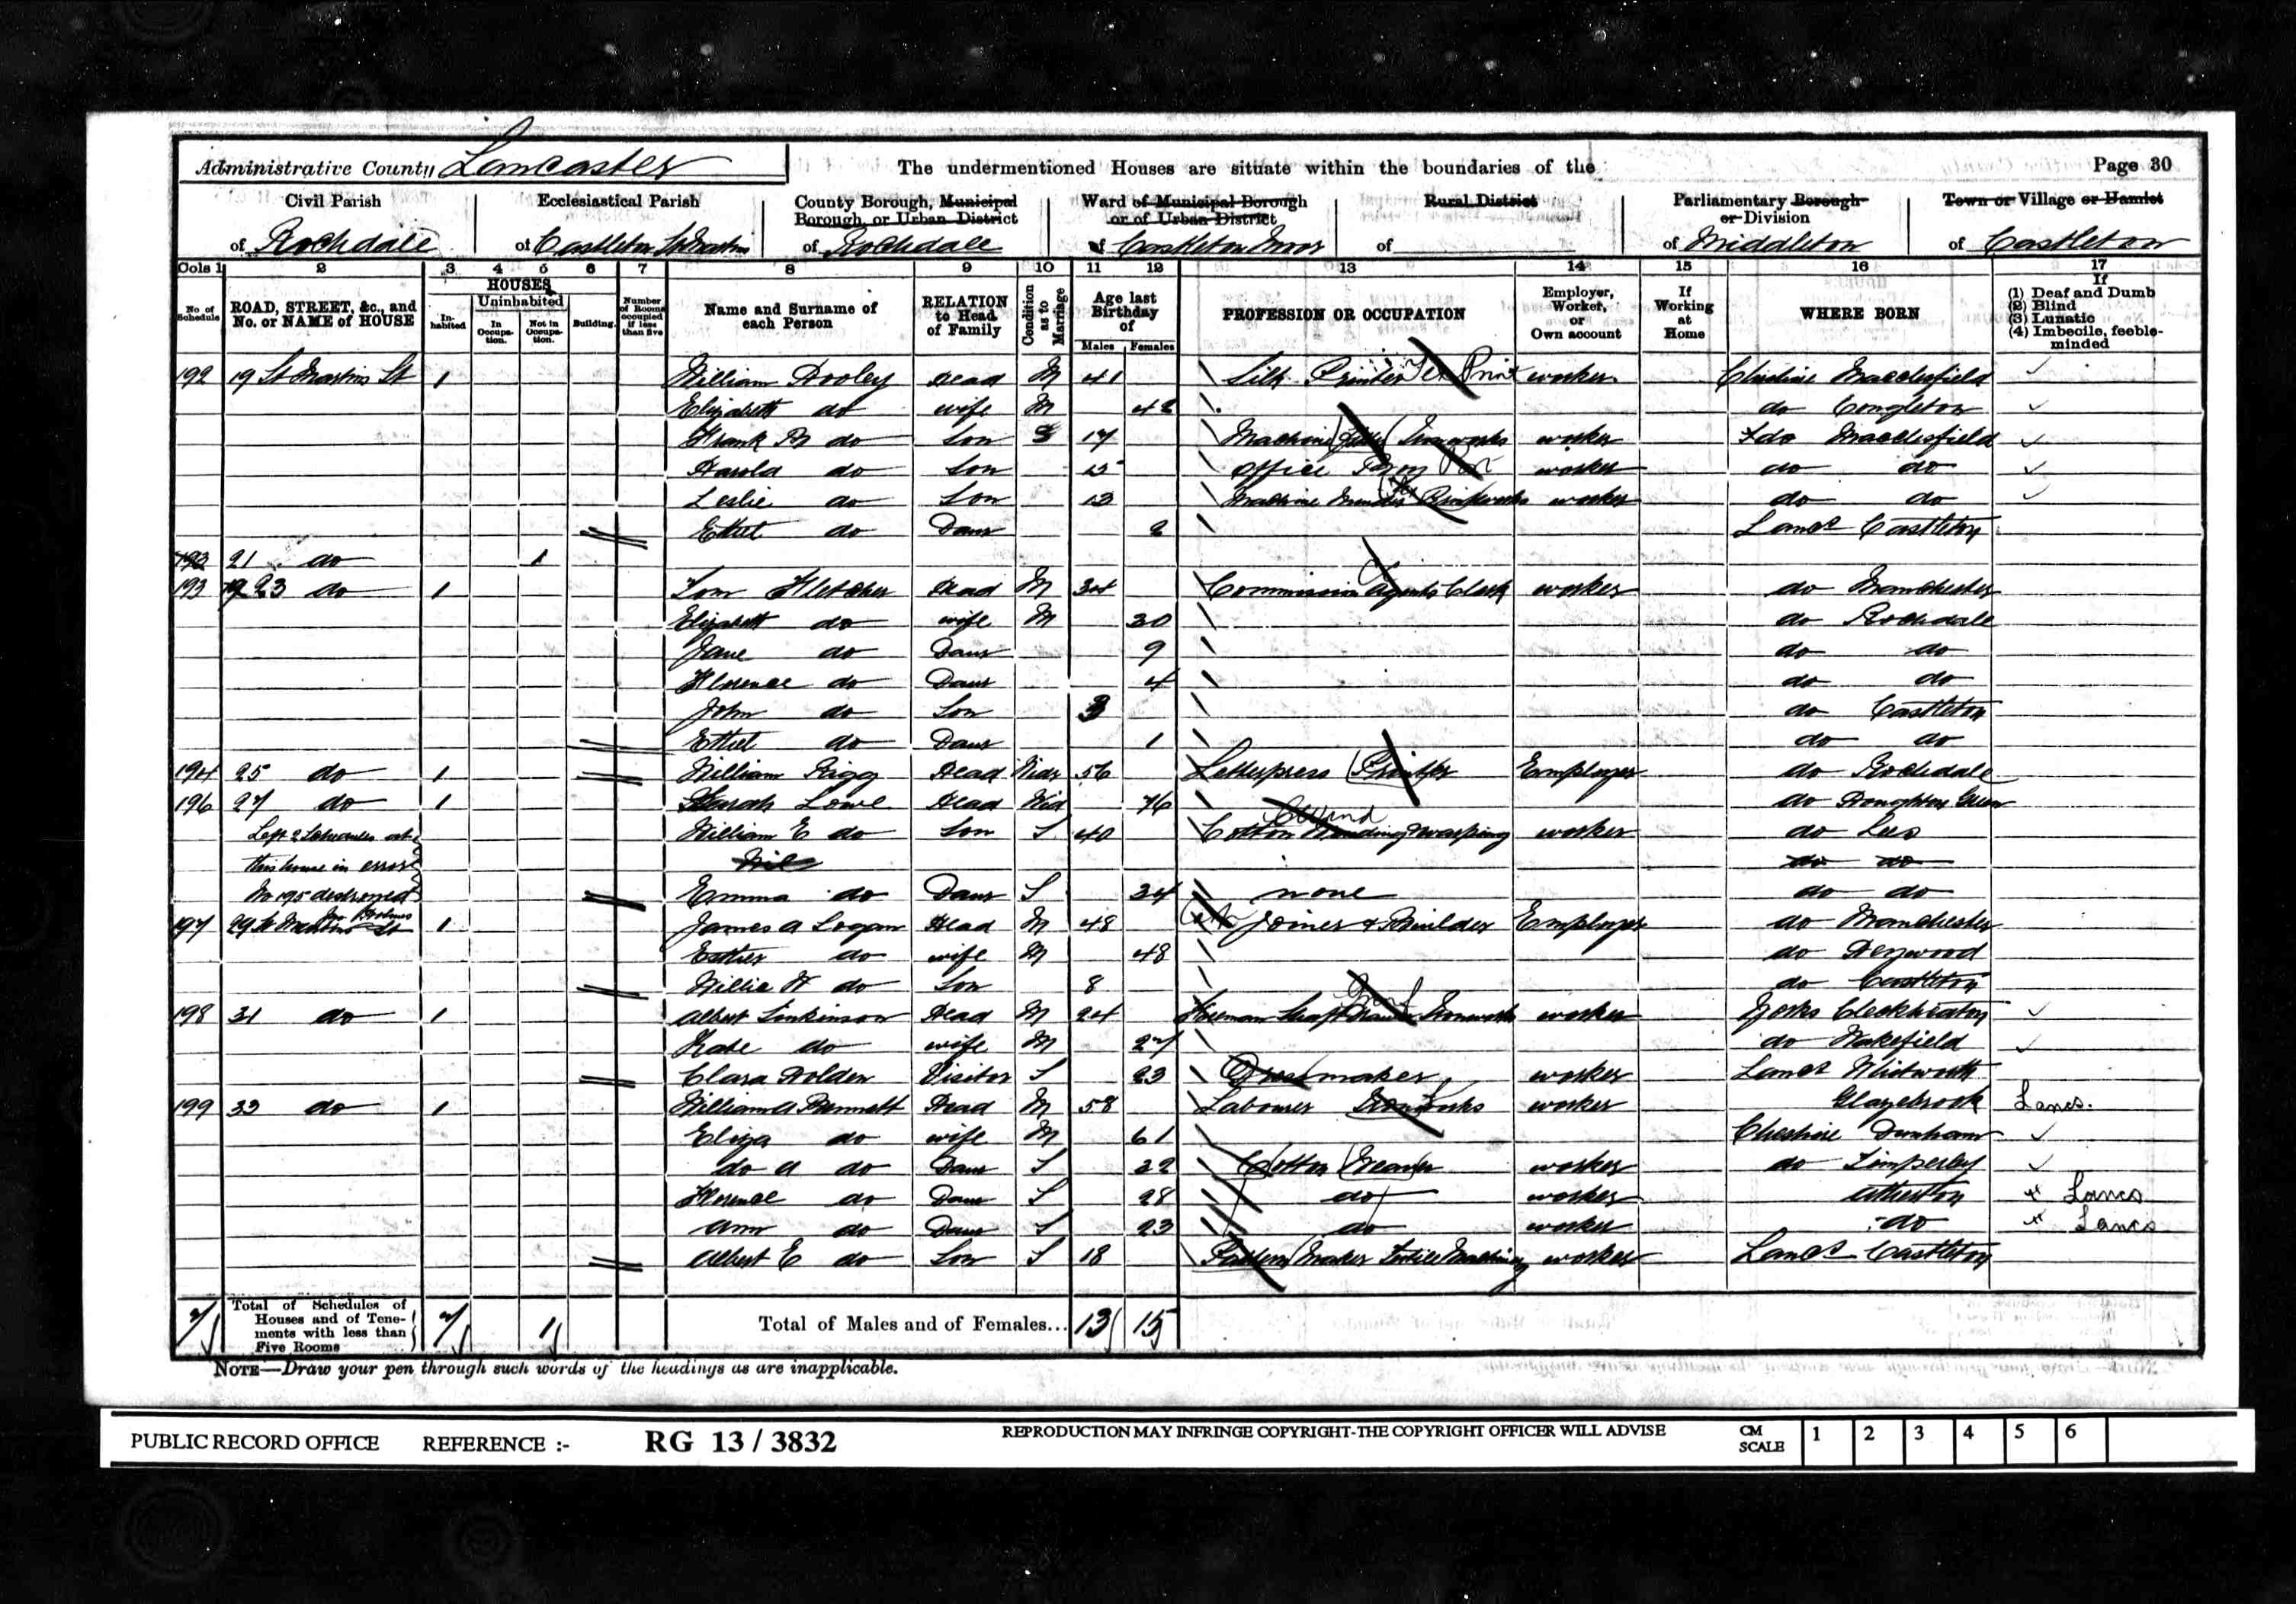 Administrative County Lancaster The undermentioned Houses are situate within the boundaries of the Page 30
Civil Parish Ecclesiastical Parish County Borough, Municipal Borough, or Urban District Ward of Municipal Borough or of Urban District Rural District Parliamentary Borough or Division Town or Village or Hamlet
of Rochdale of Castleton St Martin of Rochdale of Castleton Moor of of Middleton of Castleton
Cols 1 2 3 4 5 6 7 8 9 10 11 12 13 14 15 16 17
No of Schedule ROAD, STREET, &c., and No. or NAME of HOUSE HOUSES Inhabited Uninhabited In Occupation. Not in Occupation. Building. Number of Rooms occupied if less than five Name and Surname of each Person RELATION to Head of Family Condition as to Marriage Age last Birthday of Males Females PROFESSION OR OCCUPATION Employer, Worker, or Own account If Working at Home WHERE BORN If (1) Deaf and Dumb (2) Blind (3) Lunatic (4) Imbecile, feeble-minded
192 19 St Martins St 1 William Dooley Head M 41 Silk Printer Print worker Cheshire Macclesfield
Elizabeth do wife M 42 do Congleton
Frank do Son S 17 Machine Ironworks worker do Macclesfield
Harold do Son 15 Office Boy worker do do
Leslie do Son 13 Machine Minder Printworks worker do do
Ethel do Daur 2 Lancs Castleton
193 21 do 1
193 23 do 1 Tom Fletcher Head M 34 Commission Agents Clerk worker do Manchester
Elizabeth do wife M 30 do Rochdale
Jane do Daur 9 do do
Florence do Daur 4 do do
John do Son 3 do Castleton
Ethel do Daur 1 do do
194 25 do 1 William Rigg Head Widr 56 Letterpress Printer Employer do Rochdale
196 27 do 1 Sarah Lowe Head Wid 76 do Houghton Green
Left 2 Schedules at William E do Son S 40 Cotton Winding & warping worker do Lees
this house in error do do
No 195 destroyed Emma do Daur S 34 none do do
197 29 St Martins St 1 James A Logan Head M 48 Joiner & Builder Employer do Manchester
Esther do wife M 48 do Heywood
Willie H do Son 8 do Castleton
198 31 do 1 Albert Jenkinson Head M 24 Shaft Ironworks worker Yorks Cleckheaton
Kate do wife M 27 do Wakefield
Clara Holden Visitor S 23 Dressmaker worker Lancs Whitworth
199 33 do 1 William A Bennett Head M 58 Labourer Ironworks worker Glazebrook Lancs.
Eliza do wife M 61 Cheshire Dunham
do A do Daur S 32 Cotton Weaver worker do Timperley
Florence do Daur S 28 do worker Atherton Lancs
Ann do Daur S 23 do worker do Lancs
Albert E do Son S 18 Pattern Maker Textile Machinery worker Lancs Castleton
7 Total of Schedules of Houses and of Tenements with less than Five Rooms 7 1 Total of Males and of Females... 13 15
NOTE—Draw your pen through such words of the headings as are inapplicable.
PUBLIC RECORD OFFICE REFERENCE :- RG 13 / 3832 REPRODUCTION MAY INFRINGE COPYRIGHT-THE COPYRIGHT OFFICER WILL ADVISE CM SCALE 1 2 3 4 5 6